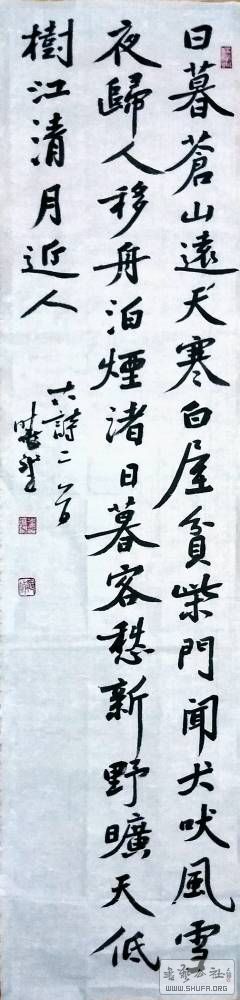 日暮蒼山遠天寒白屋貧柴門聞犬吠風雪
夜歸人移舟泊煙渚日暮客愁新野曠天低
樹江清月近人
古詩二首
WWW.SHUFA.ORG